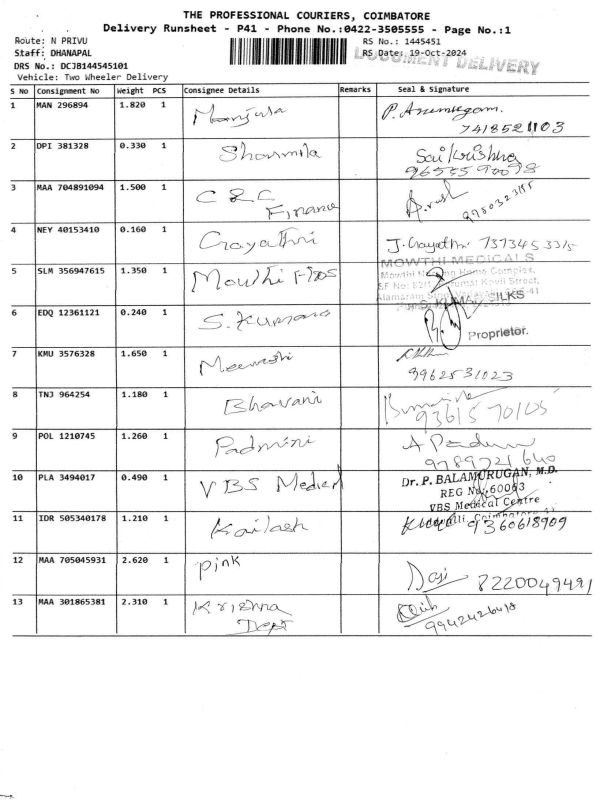 THE PROFESSIONAL COURIERS, COIMBATORE
Delivery Runsheet - P41 - Phone No.:0422-3505555 - Page No.:1
Route: N PRIVU
RS No.: 1445451
Staff: DHANAPAL
RS Date: 19-Oct-2024
DOCUMENT DELIVERY
DRS No.: DCJB144545101
Vehicle: Two Wheeler Delivery
S No Consignment No Weight PCS Consignee Details Remarks Seal & Signature
1 MAN 296894 1.820 1 Manjula P. Arumugam.
7418521103
2 DPI 381328 0.330 1 Sharmila Sai Krishna
3 MAA 704891094 1.500 1 C & C
Finance 9980323185
4 NEY 40153410 0.160 1 Gayathri J. Gayathri 7373453315
MOWTHI MEDICALS
5 SLM 356947615 1.350 1 Mowthi
6 EDQ 12361121 0.240 1 S. Kumara SILKS
Proprietor.
7 KMU 3576328 1.650 1 Meenakshi
9962531023
8 TNJ 964254 1.180 1 Bhavani
9361570105
9 POL 1210745 1.260 1 Padmini A Padmini
9789721640
10 PLA 3494017 0.490 1 VBS Medical Dr. P. BALAMURUGAN, M.D.
REG No. 60063
VBS Medical Centre
11 IDR 505340178 1.210 1 Kailash 9360618909
12 MAA 705045931 2.620 1 Pink
8220049491
13 MAA 301865381 2.310 1 Krishna
Dept 9942426418